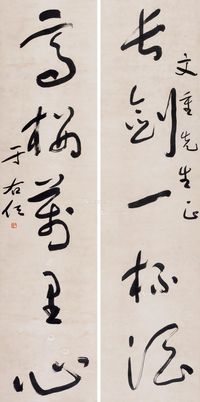 文重先生正
長劍一杯酒
高樓萬里心
于右任